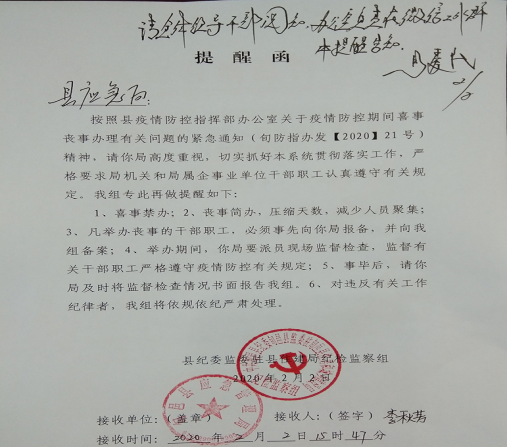 请全体领导干部周知。办公室负责在微信工作群
作提醒告知。
2/2
提 醒 函
县应急局:
按照县疫情防控指挥部办公室关于疫情防控期间喜事
丧事办理有关问题的紧急通知（旬防指办发【2020】21 号）
精神，请你局高度重视，切实抓好本系统贯彻落实工作，严
格要求局机关和局属企事业单位干部职工认真遵守有关规
定。我组专此再做提醒如下：
1、喜事禁办；2、丧事简办，压缩天数，减少人员聚集；
3、凡举办丧事的干部职工，必须事先向你局报备，并向我
组备案；4、举办期间，你局要派员现场监督检查，监督有
关干部职工严格遵守疫情防控有关规定；5、事毕后，请你
局及时将监督检查情况书面报告我组。6、对违反有关工作
纪律者，我组将依规依纪严肃处理。
县纪委监委驻县住建局纪检监察组
2020年2月2日
接收单位：（盖章） 接收人：（签字）李秋芳
接收时间： 2020 年 2 月 2 日 15 时 47 分